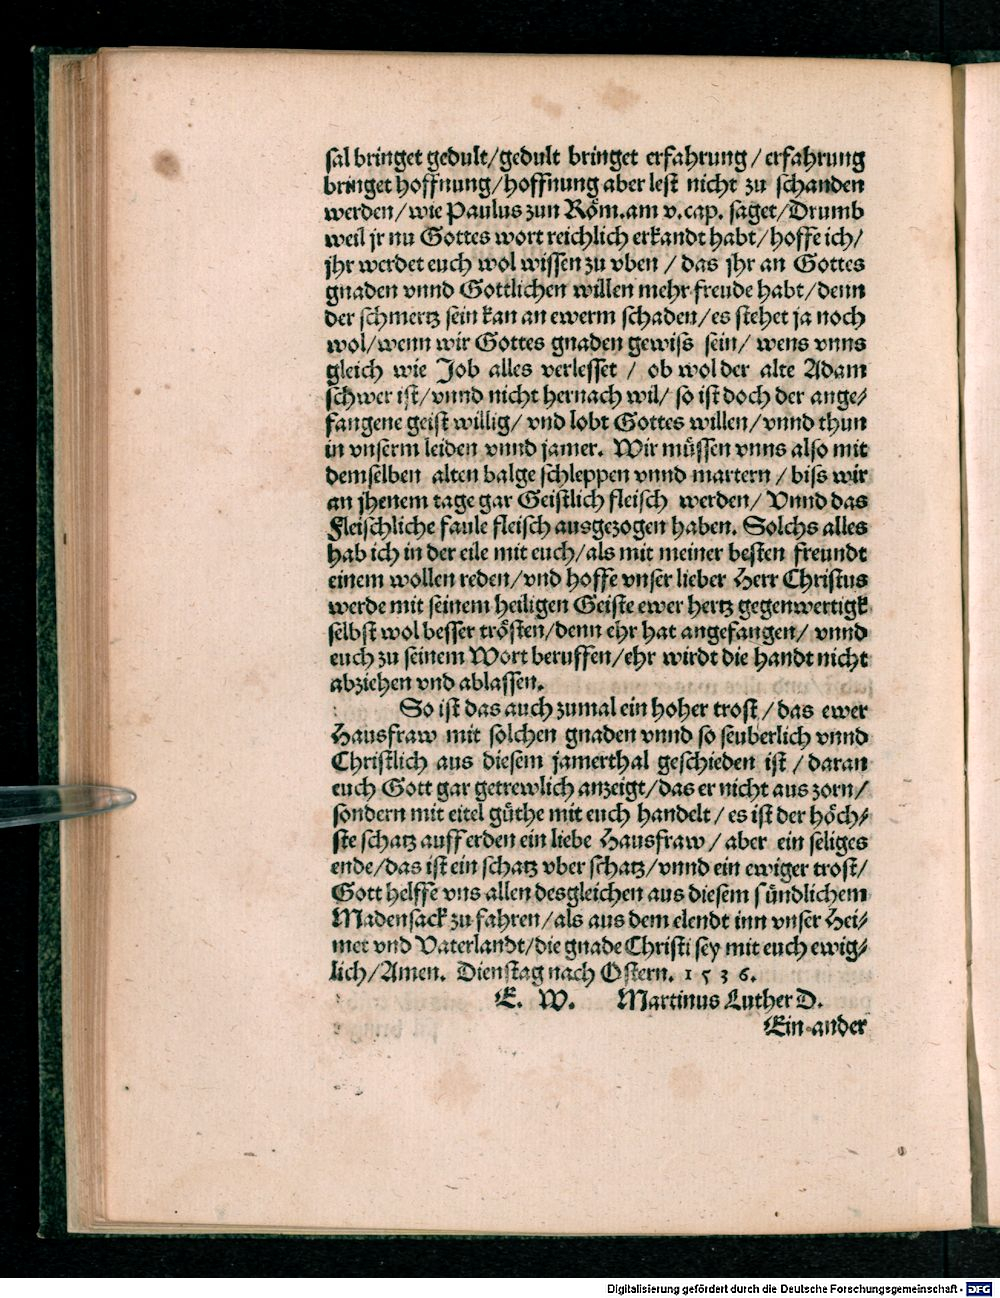 sal bringet gedult/gedult bringet erfahrung/erfahrung
bringet hoffnung/hoffnung aber lest nicht zu schanden
werden/wie Paulus zun Röm.am v.cap. saget/Drumb
weil jr nu Gottes wort reichlich erkandt habt/hoffe ich/
jhr werdet euch wol wissen zu vben/das jhr an Gottes
gnaden vnnd Gottlichen willen mehr freude habt/denn
der schmertz sein kan an ewerm schaden/es stehet ja noch
wol/wenn wir Gottes gnaden gewiss sein/ wens vnns
gleich wie Job alles verlesset / ob wol der alte Adam
schwer ist/vnnd nicht hernach wil/ so ist doch der ange-
fangene geist willig/ vnd lobt Gottes willen/vnnd thun
in vnserm leiden vnnd jamer. Wir müssen vnns also mit
demselben alten balge schleppen vnnd martern/biss wir
an jhenem tage gar Geistlich fleisch werden/ Vnnd das
Fleischliche faule fleisch ausgezogen haben. Solchs alles
hab ich in der eile mit euch/als mit meiner besten freundt
einem wollen reden/vnd hoffe vnser lieber Herr Christus
werde mit seinem heiligen Geiste ewer hertz gegenwertigk
selbst wol besser trösten/denn ehr hat angefangen/ vnnd
euch zu seinem Wort beruffen/ehr wirdt die handt nicht
abziehen vnd ablassen.
So ist das auch zumal ein hoher trost/das ewer
Hausfraw mit solchen gnaden vnnd so seuberlich vnnd
Christlich aus diesem jamerthal geschieden ist/daran
euch Gott gar getrewlich anzeigt/das er nicht aus zorn/
sondern mit eitel güthe mit euch handelt/es ist der höch-
ste schatz auff erden ein liebe Hausfraw/aber ein seliges
ende/das ist ein schatz vber schatz/vnnd ein ewiger trost/
Gott helffe vns allen desgleichen aus diesem sündlichem
Madensack zu fahren/als aus dem elendt inn vnser Hei-
met vnd Vaterlandt/die gnade Christi sey mit euch ewig-
lich/Amen. Dienstag nach Ostern. 1536.
E. W. Martinus Luther D.
Ein ander
Digitalisierung gefördert durch die Deutsche Forschungsgemeinschaft - DFG